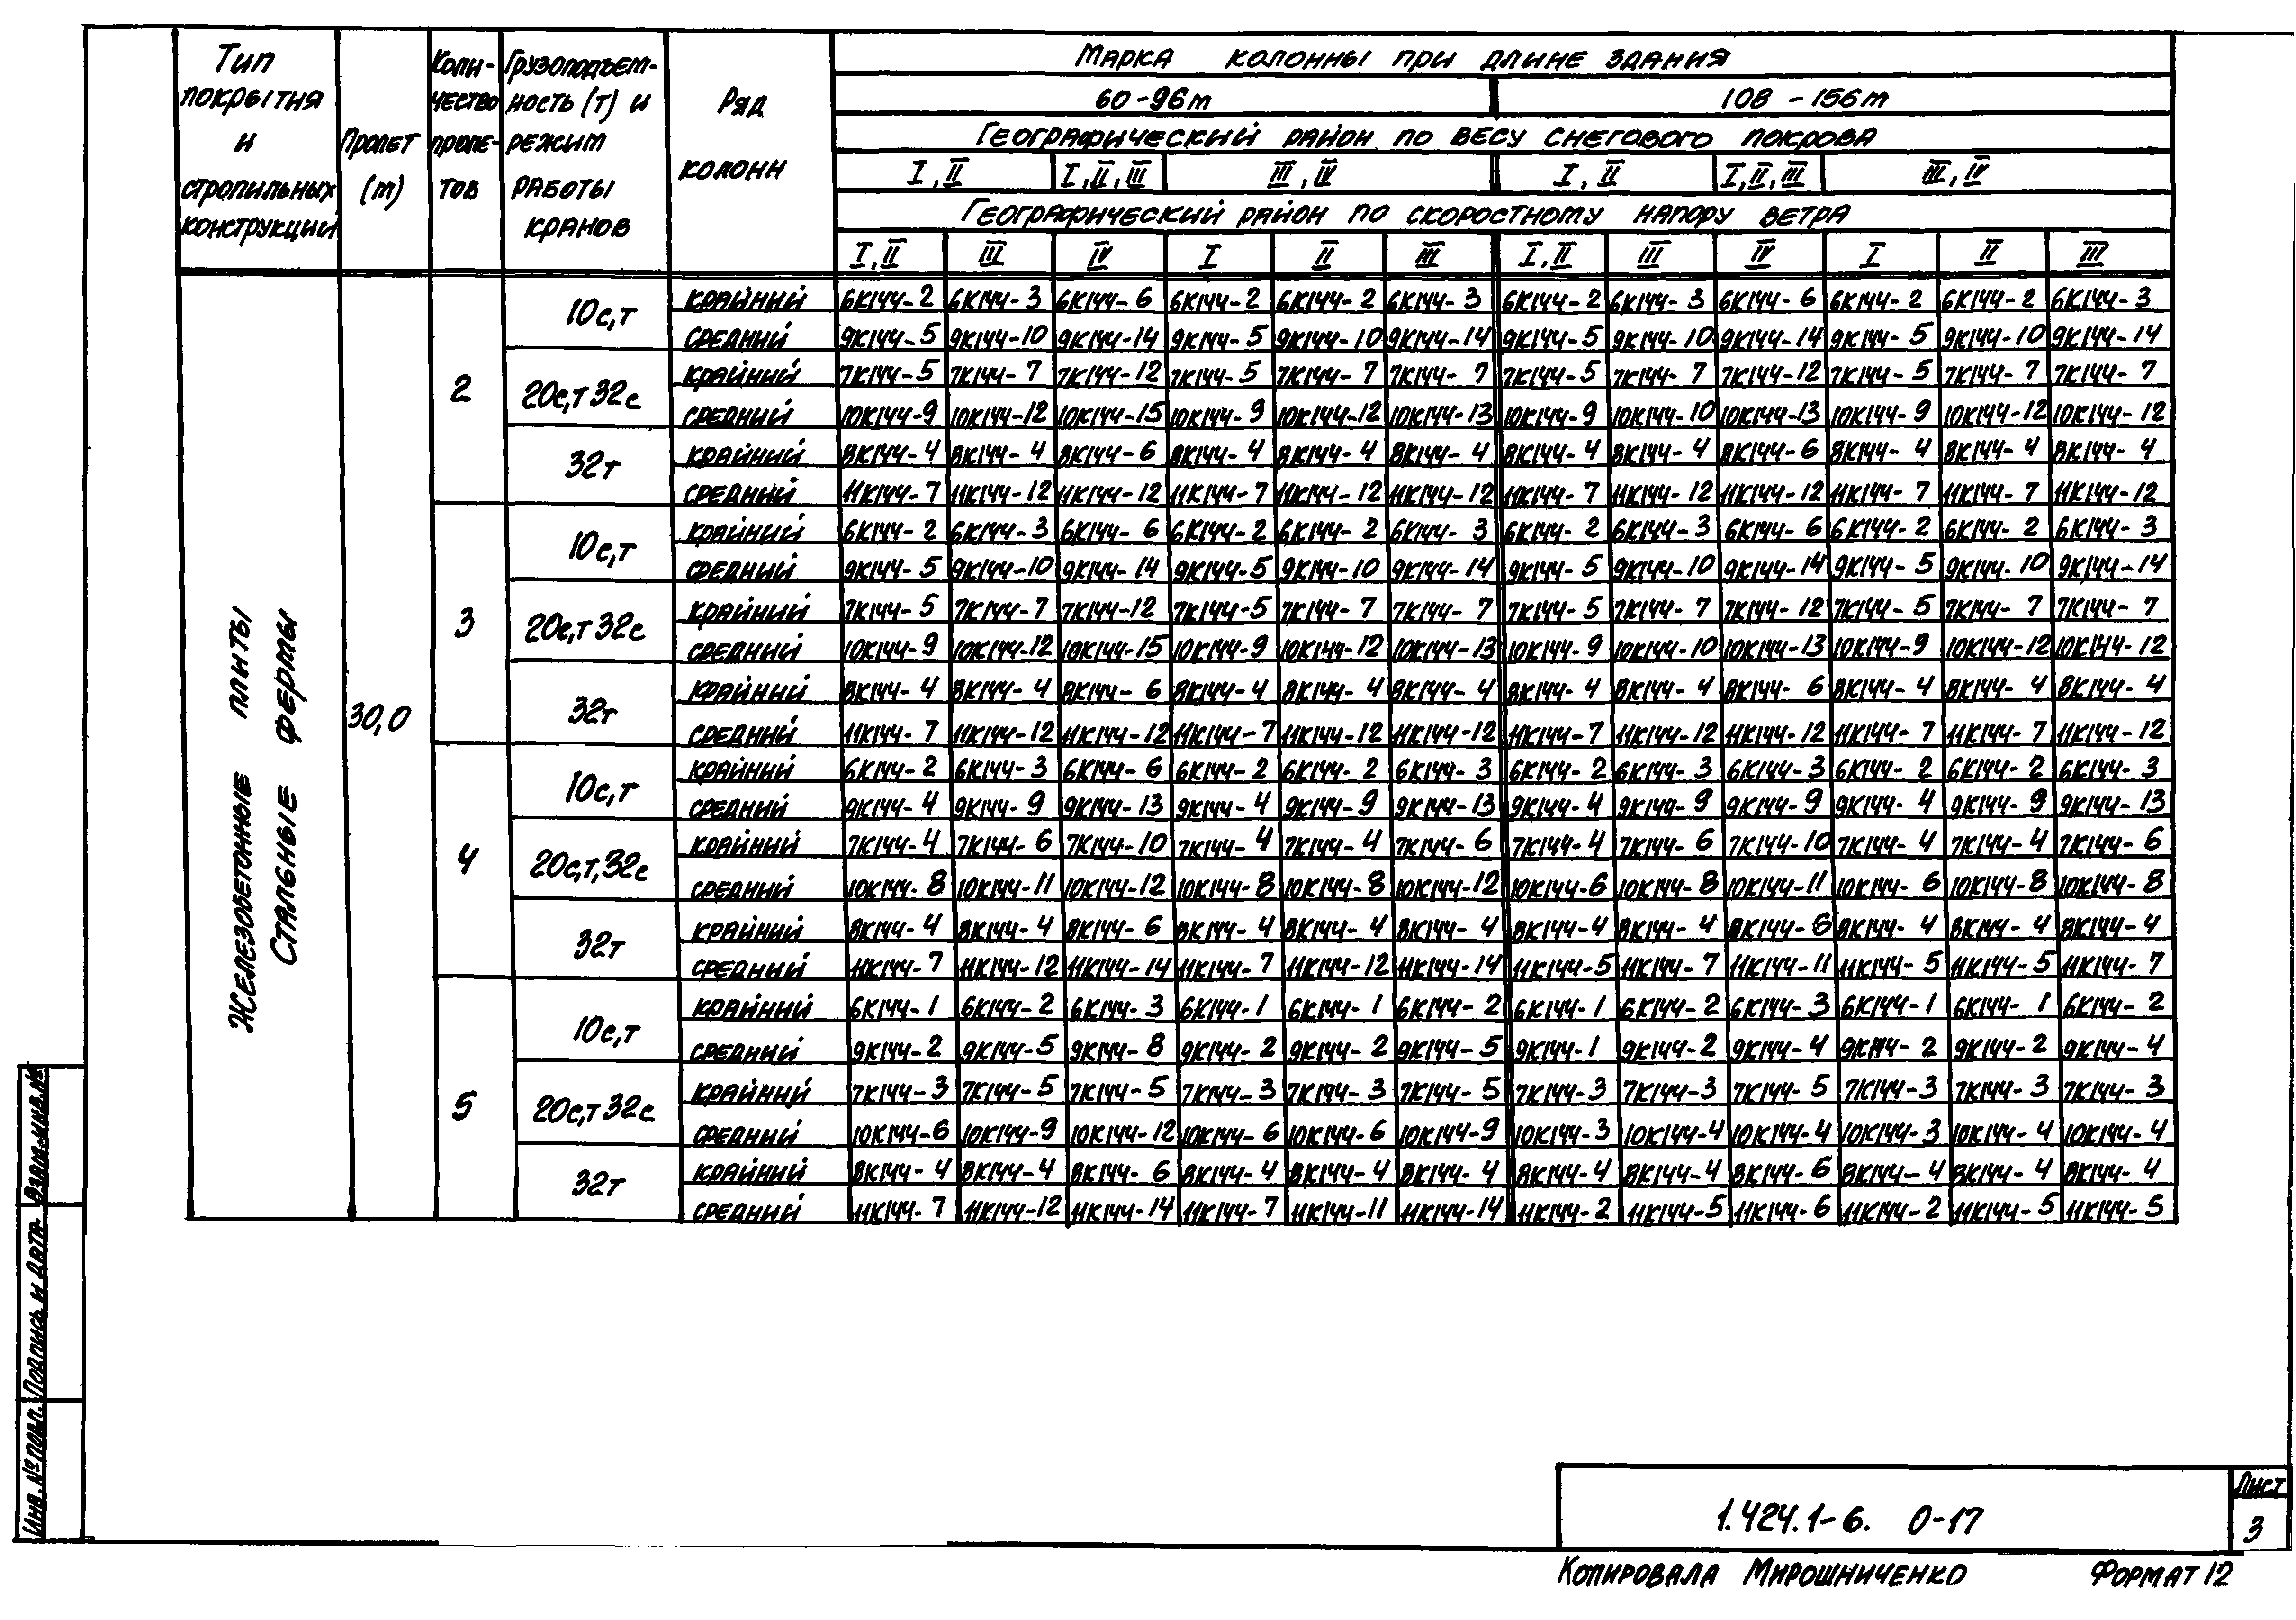 Тип покрытия и стропильных конструкций | Пролет (m) | Коли-чество проле-тов | Грузоподъем-ность (т) и режим работы кранов | Ряд колонн | Марка колонны при длине здания
60-96m | 108-156m
Географический район по весу снегового покрова
I, II | I, II, III | III, IV | I, II | I, II, III | III, IV
Географический район по скоростному напору ветра
I, II | III | IV | I | II | III | I, II | III | IV | I | II | III
Железобетонные плиты
Стальные фермы
30,0
2
10с,т
крайний 6К144-2 6К144-3 6К144-6 6К144-2 6К144-2 6К144-3 6К144-2 6К144-3 6К144-6 6К144-2 6К144-2 6К144-3
средний 9К144-5 9К144-10 9К144-14 9К144-5 9К144-10 9К144-14 9К144-5 9К144-10 9К144-14 9К144-5 9К144-10 9К144-14
20с,т 32с
крайний 7К144-5 7К144-7 7К144-12 7К144-5 7К144-7 7К144-7 7К144-5 7К144-7 7К144-12 7К144-5 7К144-7 7К144-7
средний 10К144-9 10К144-12 10К144-15 10К144-9 10К144-12 10К144-13 10К144-9 10К144-10 10К144-13 10К144-9 10К144-12 10К144-12
32т
крайний 8К144-4 8К144-4 8К144-6 8К144-4 8К144-4 8К144-4 8К144-4 8К144-4 8К144-6 8К144-4 8К144-4 8К144-4
средний 11К144-7 11К144-12 11К144-12 11К144-7 11К144-12 11К144-12 11К144-7 11К144-12 11К144-12 11К144-7 11К144-7 11К144-12
3
10с,т
крайний 6К144-2 6К144-3 6К144-6 6К144-2 6К144-2 6К144-3 6К144-2 6К144-3 6К144-6 6К144-2 6К144-2 6К144-3
средний 9К144-5 9К144-10 9К144-14 9К144-5 9К144-10 9К144-14 9К144-5 9К144-10 9К144-14 9К144-5 9К144-10 9К144-14
20с,т 32с
крайний 7К144-5 7К144-7 7К144-12 7К144-5 7К144-7 7К144-7 7К144-5 7К144-7 7К144-12 7К144-5 7К144-7 7К144-7
средний 10К144-9 10К144-12 10К144-15 10К144-9 10К144-12 10К144-13 10К144-9 10К144-10 10К144-13 10К144-9 10К144-12 10К144-12
32т
крайний 8К144-4 8К144-4 8К144-6 8К144-4 8К144-4 8К144-4 8К144-4 8К144-4 8К144-6 8К144-4 8К144-4 8К144-4
средний 11К144-7 11К144-12 11К144-12 11К144-7 11К144-12 11К144-12 11К144-7 11К144-12 11К144-12 11К144-7 11К144-7 11К144-12
4
10с,т
крайний 6К144-2 6К144-3 6К144-6 6К144-2 6К144-2 6К144-3 6К144-2 6К144-3 6К144-3 6К144-2 6К144-2 6К144-3
средний 9К144-4 9К144-9 9К144-13 9К144-4 9К144-9 9К144-13 9К144-4 9К144-9 9К144-9 9К144-4 9К144-9 9К144-13
20с,т,32с
крайний 7К144-4 7К144-6 7К144-10 7К144-4 7К144-4 7К144-6 7К144-4 7К144-6 7К144-10 7К144-4 7К144-4 7К144-6
средний 10К144-8 10К144-11 10К144-12 10К144-8 10К144-8 10К144-12 10К144-6 10К144-8 10К144-11 10К144-6 10К144-8 10К144-8
32т
крайний 8К144-4 8К144-4 8К144-6 8К144-4 8К144-4 8К144-4 8К144-4 8К144-4 8К144-6 8К144-4 8К144-4 8К144-4
средний 11К144-7 11К144-12 11К144-14 11К144-7 11К144-12 11К144-14 11К144-5 11К144-7 11К144-11 11К144-5 11К144-5 11К144-7
5
10с,т
крайний 6К144-1 6К144-2 6К144-3 6К144-1 6К144-1 6К144-2 6К144-1 6К144-2 6К144-3 6К144-1 6К144-1 6К144-2
средний 9К144-2 9К144-5 9К144-8 9К144-2 9К144-2 9К144-5 9К144-1 9К144-2 9К144-4 9К144-2 9К144-2 9К144-4
20с,т 32с
крайний 7К144-3 7К144-5 7К144-5 7К144-3 7К144-3 7К144-5 7К144-3 7К144-3 7К144-5 7К144-3 7К144-3 7К144-3
средний 10К144-6 10К144-9 10К144-12 10К144-6 10К144-6 10К144-9 10К144-3 10К144-4 10К144-4 10К144-3 10К144-4 10К144-4
32т
крайний 8К144-4 8К144-4 8К144-6 8К144-4 8К144-4 8К144-4 8К144-4 8К144-4 8К144-6 8К144-4 8К144-4 8К144-4
средний 11К144-7 11К144-12 11К144-14 11К144-7 11К144-11 11К144-14 11К144-2 11К144-5 11К144-6 11К144-2 11К144-5 11К144-5
Взам.инв.№
Подпись и дата
Инв.№ подл.
1.424.1-6. 0-17
Лист
3
Копировала Мирошниченко Формат 12